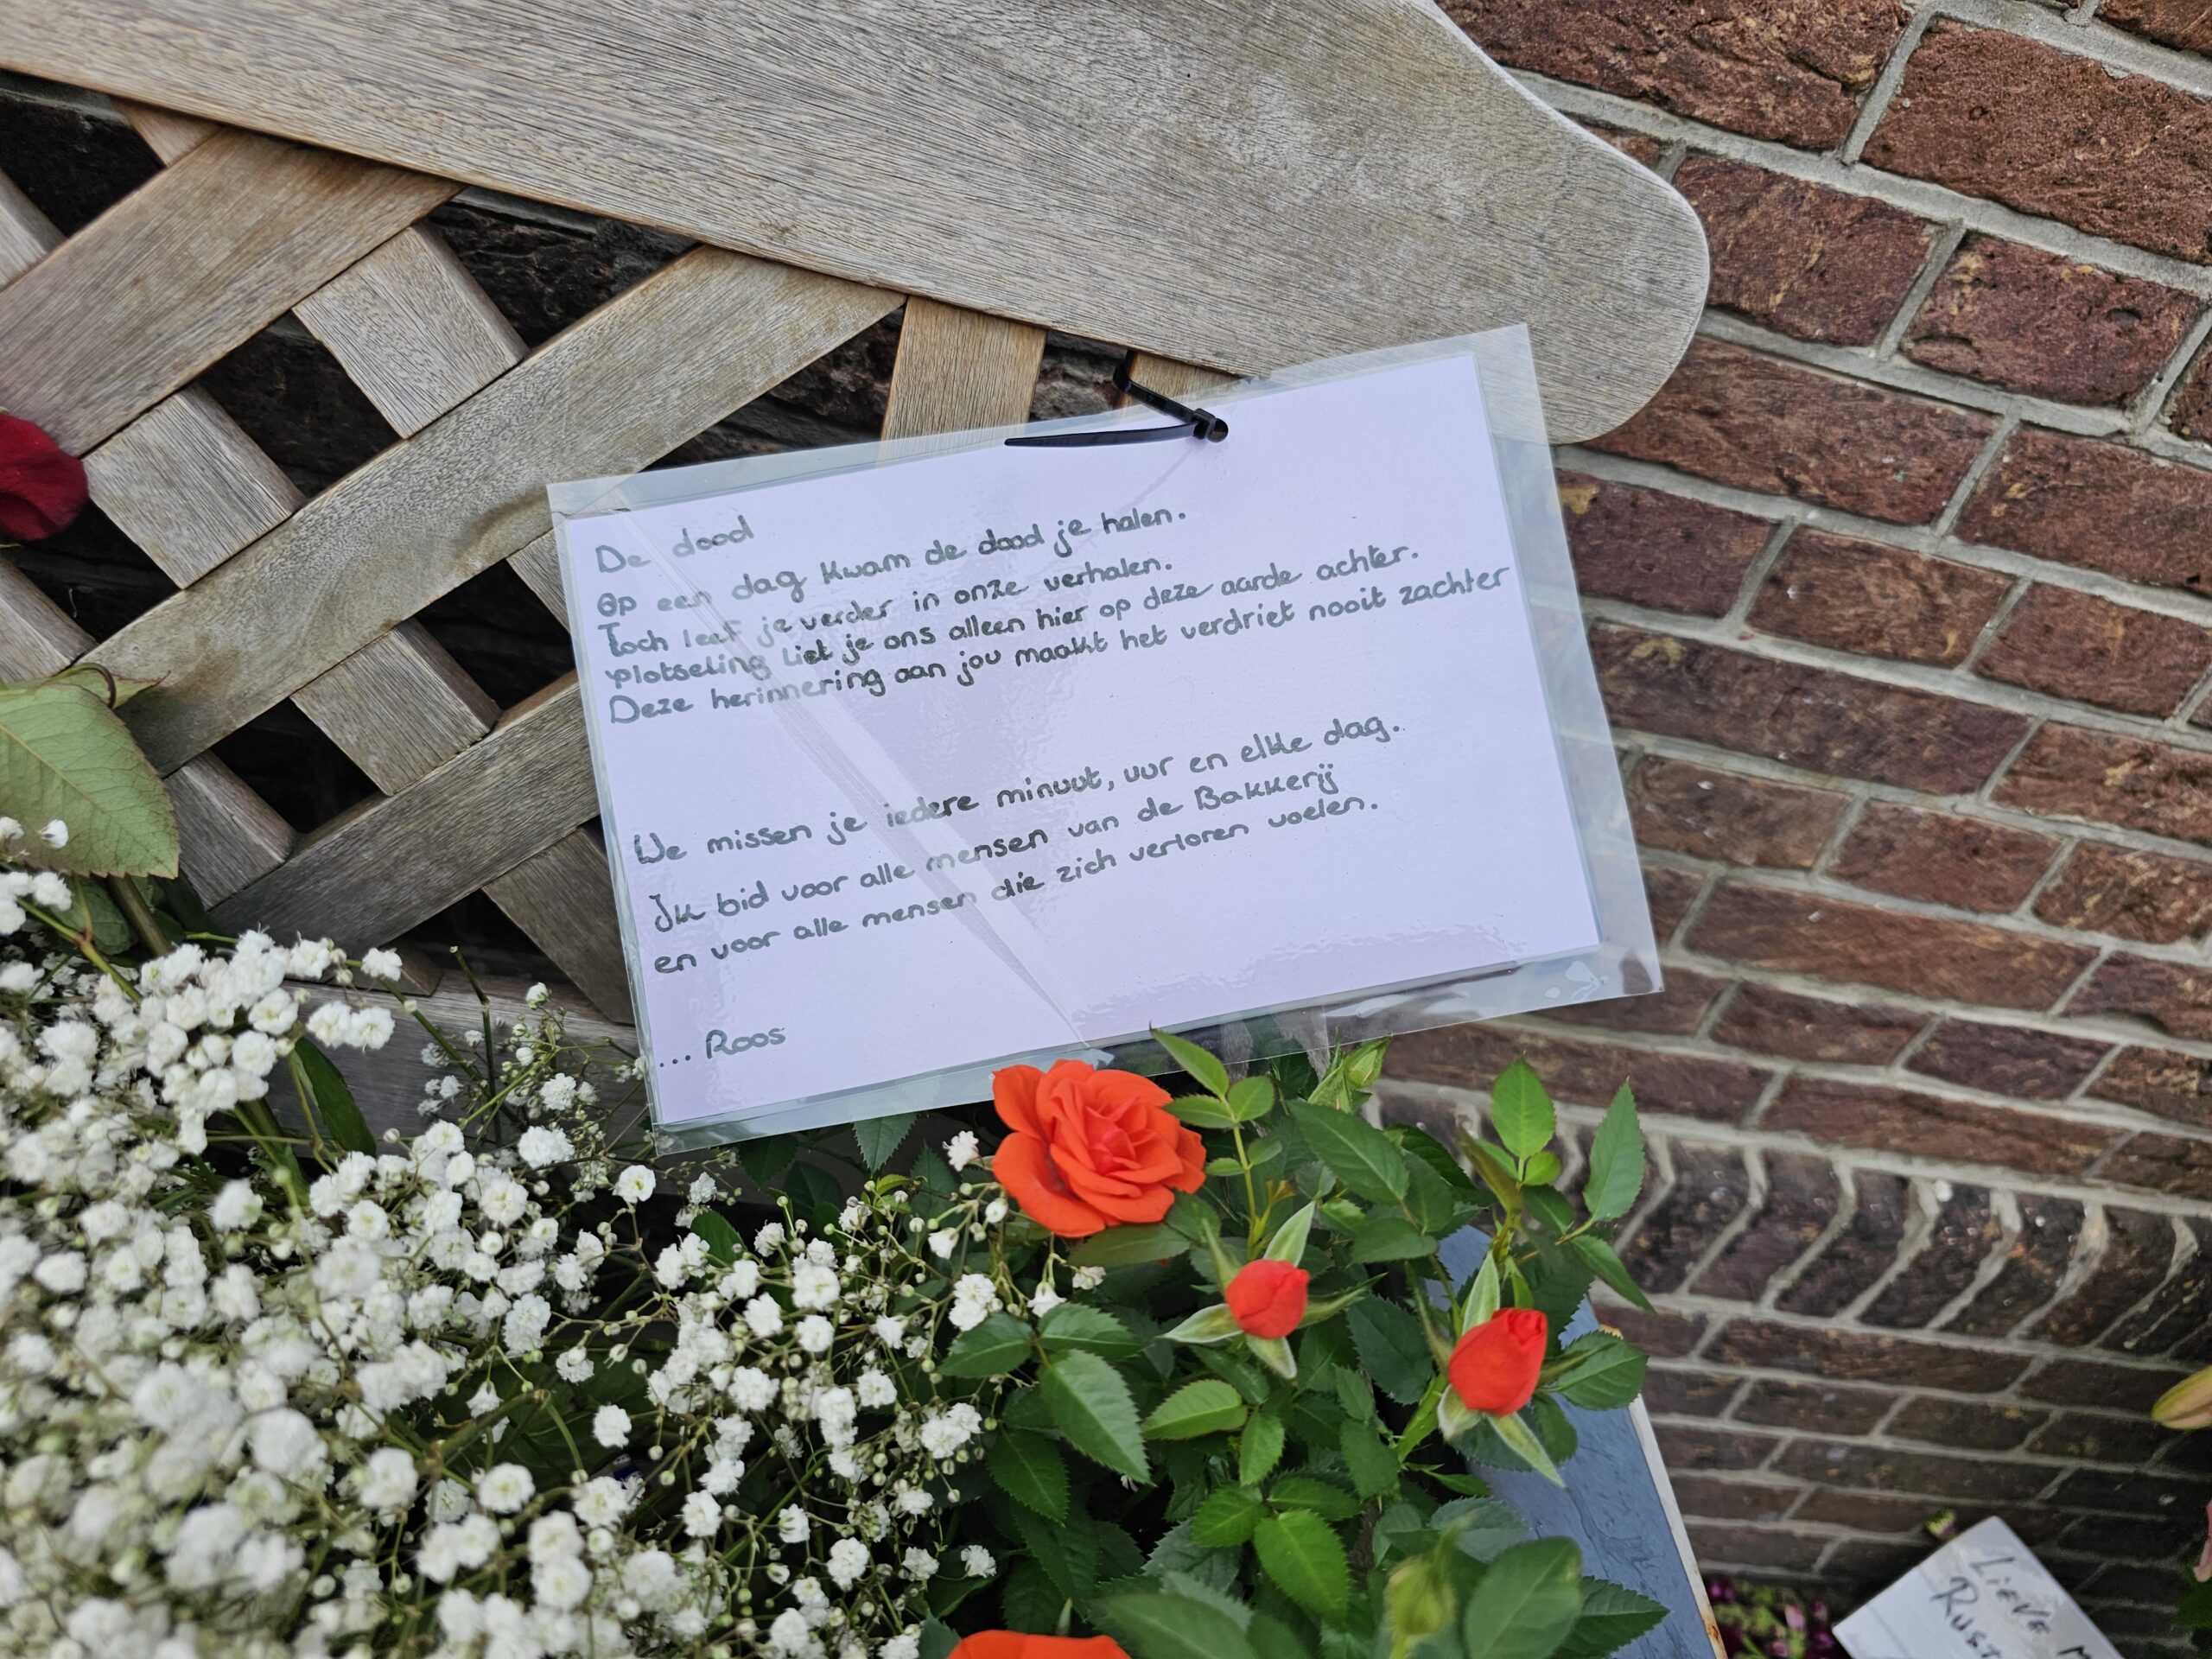 De dood
Op een dag kwam de dood je halen.
Toch leef je verder in onze verhalen.
plotseling liet je ons alleen hier op deze aarde achter.
Deze herinnering aan jou maakt het verdriet nooit zachter
We missen je iedere minuut, uur en elke dag.
Ik bid voor alle mensen van de Bakkerij
en voor alle mensen die zich verloren voelen.
... Roos
Lieve